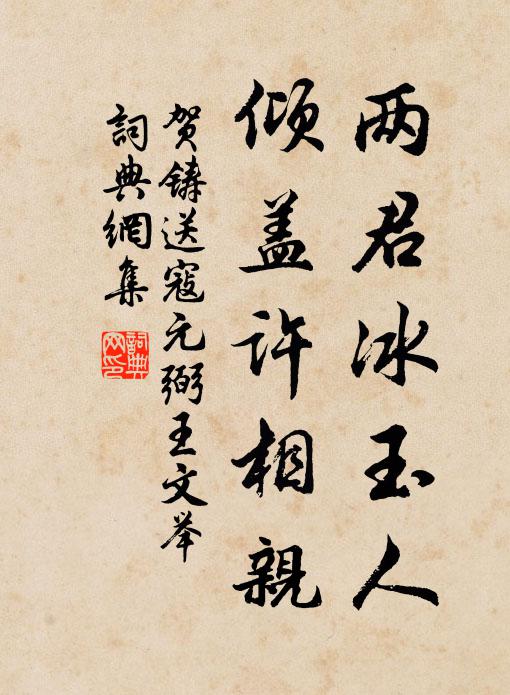 两君冰玉人
倾盖许相親
贺鑄送寇元弼王文举
詞典網集
詞典
网印